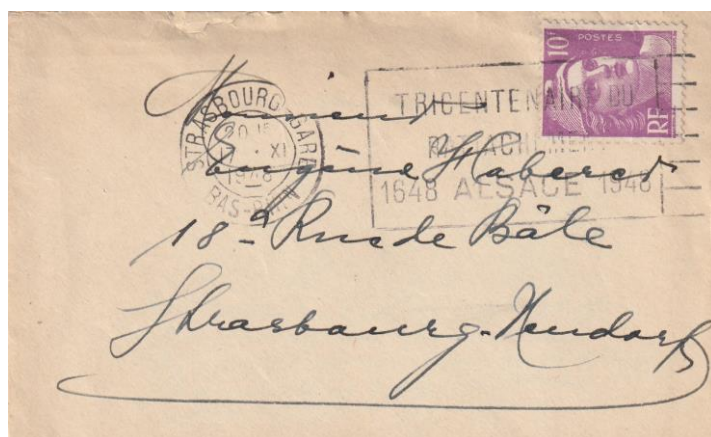 POSTES
10F
RF
STRASBOURG-GARE
20 H
XI
1948
BAS-RHIN
TRICENTENAIRE DU
RATTACHEMENT
1648 ALSACE 1948
Monsieur
Eugène Haberer
18 a Rue de Bâle
Strasbourg-Neudorf